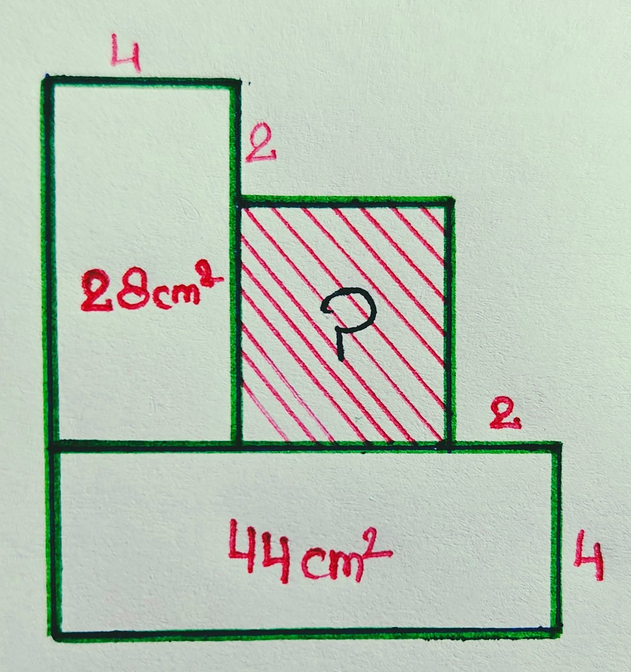 4
2
28cm²
?
2
44cm²
4